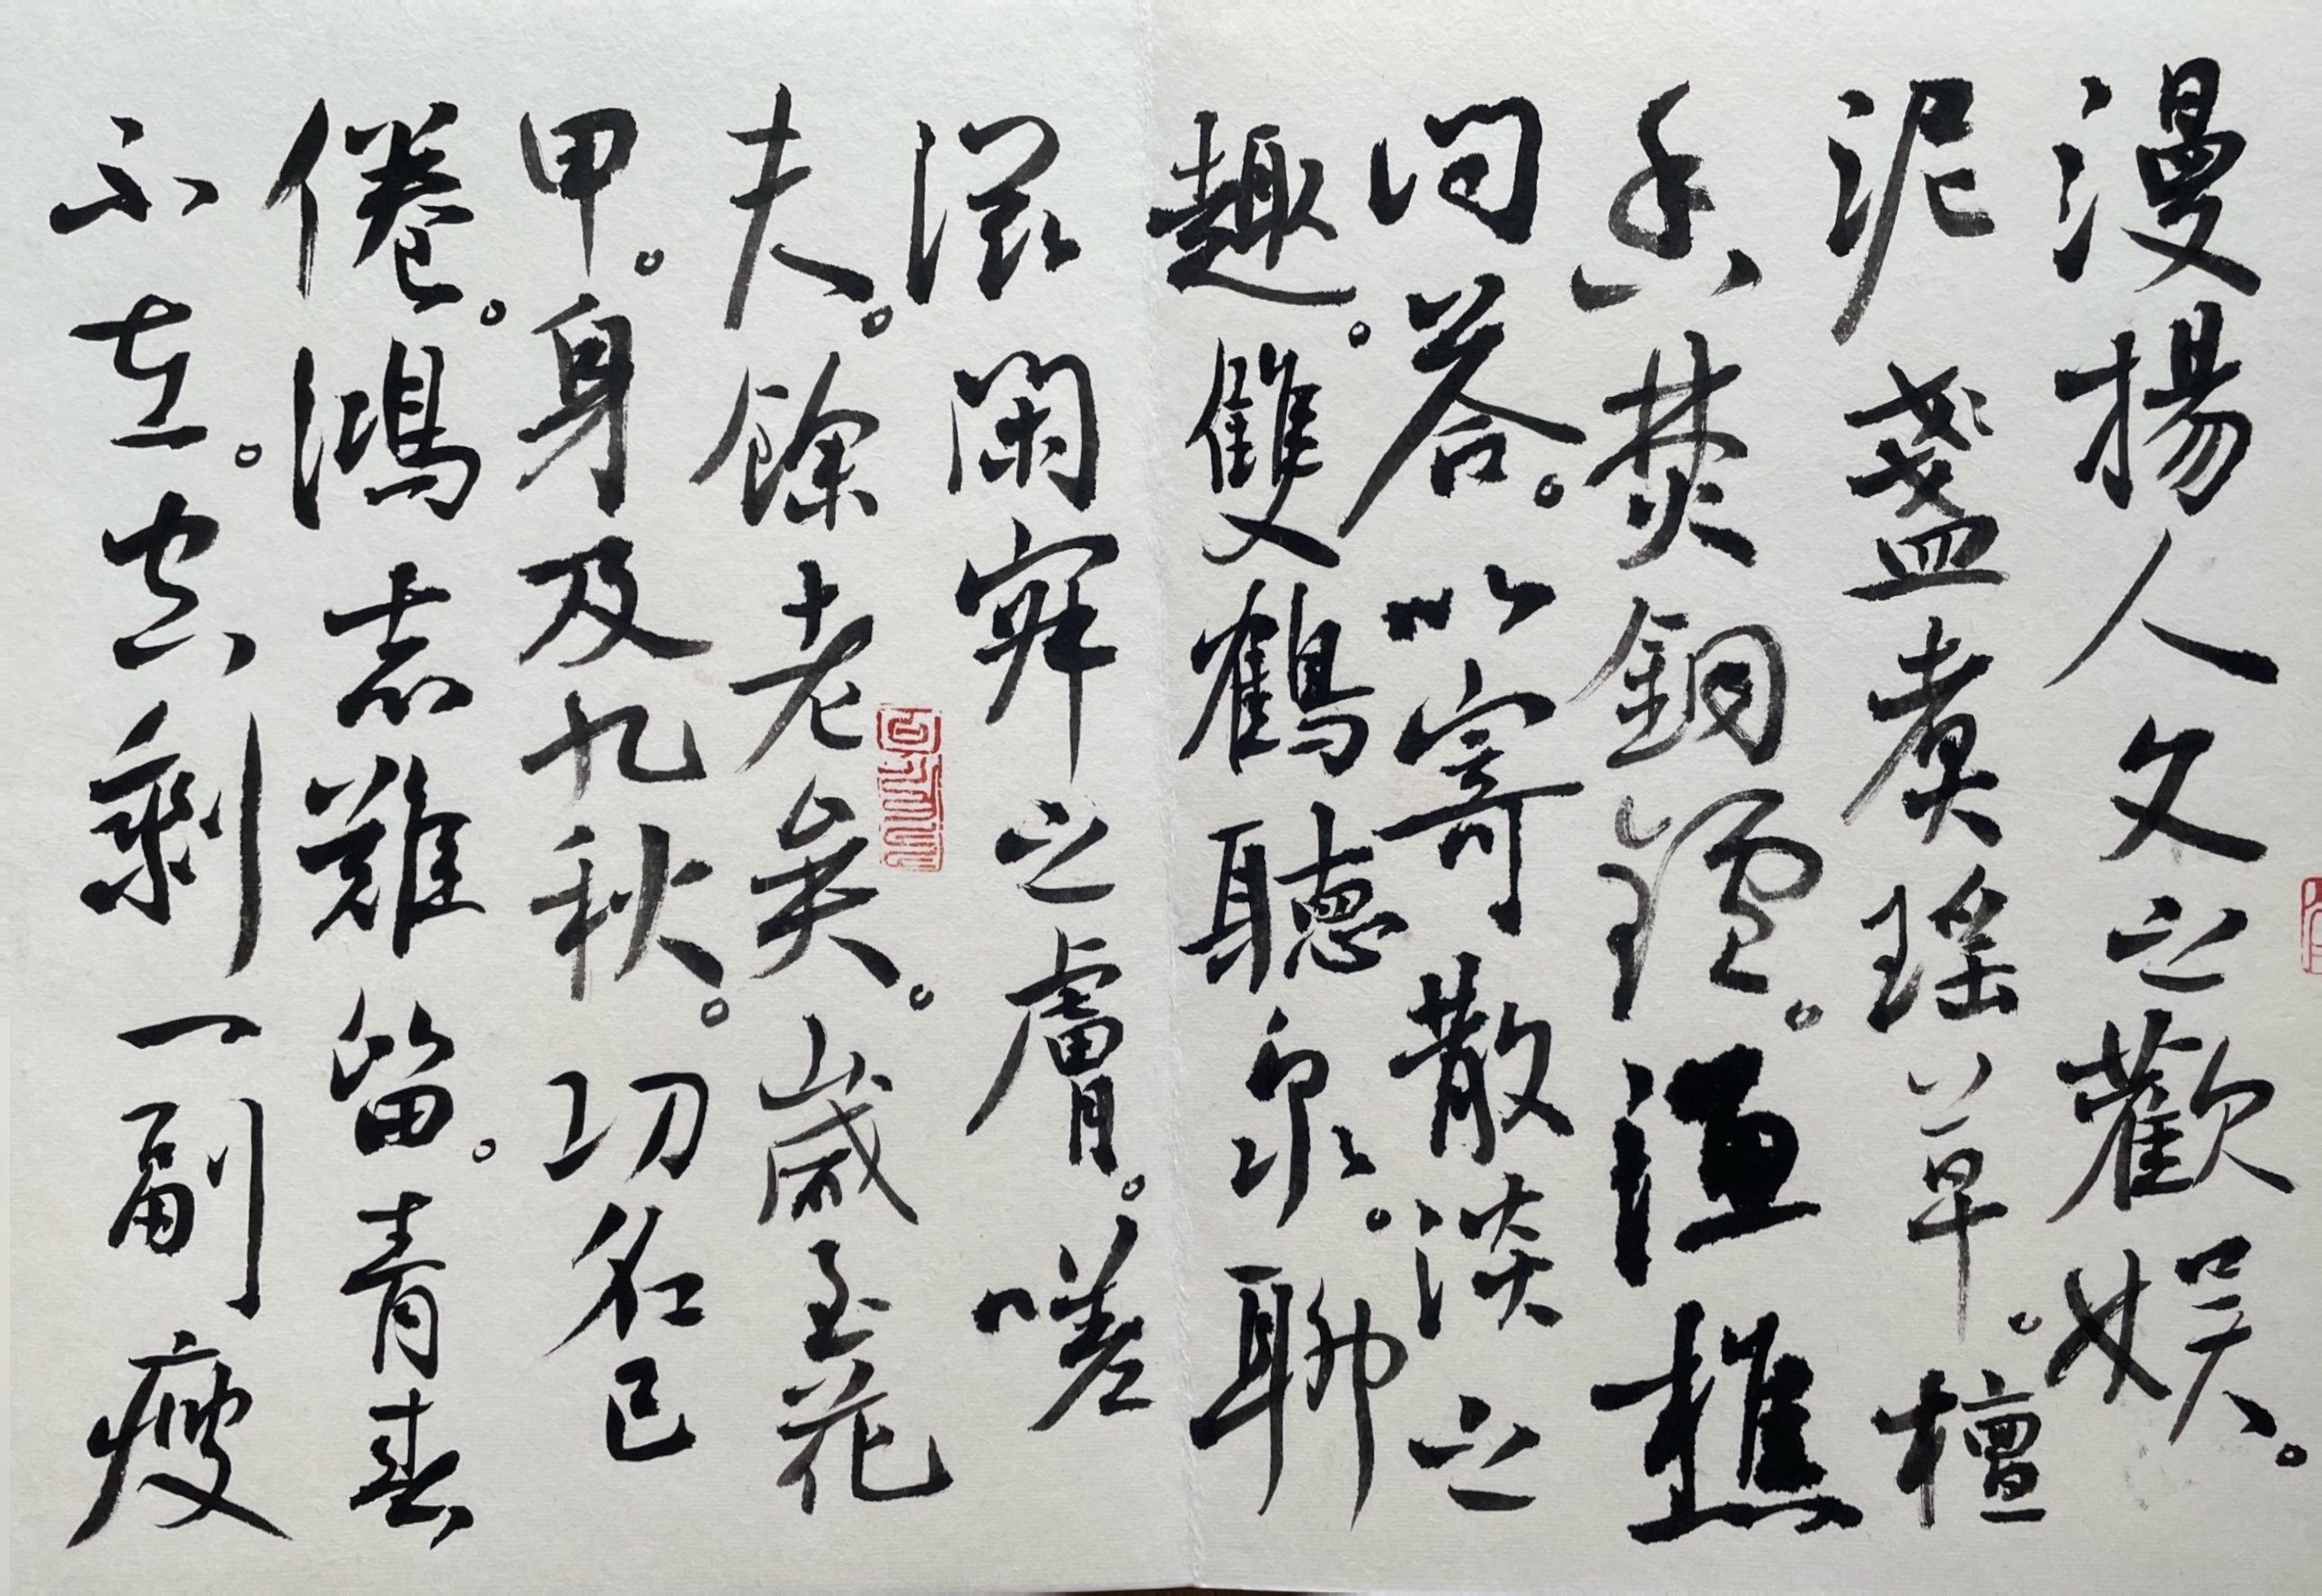 漫揚人文之歡娱。
泥盞煮瑶草。檀
香焚銅鑪。漁樵
问答。以寄散淡之
趣。雙鶴聽泉。聊
滋闲寂之膚。嗟
夫。餘老矣。歲至花
甲。身及九秋。功名已
倦。鴻志難留。青春
不在。空剩一副瘦